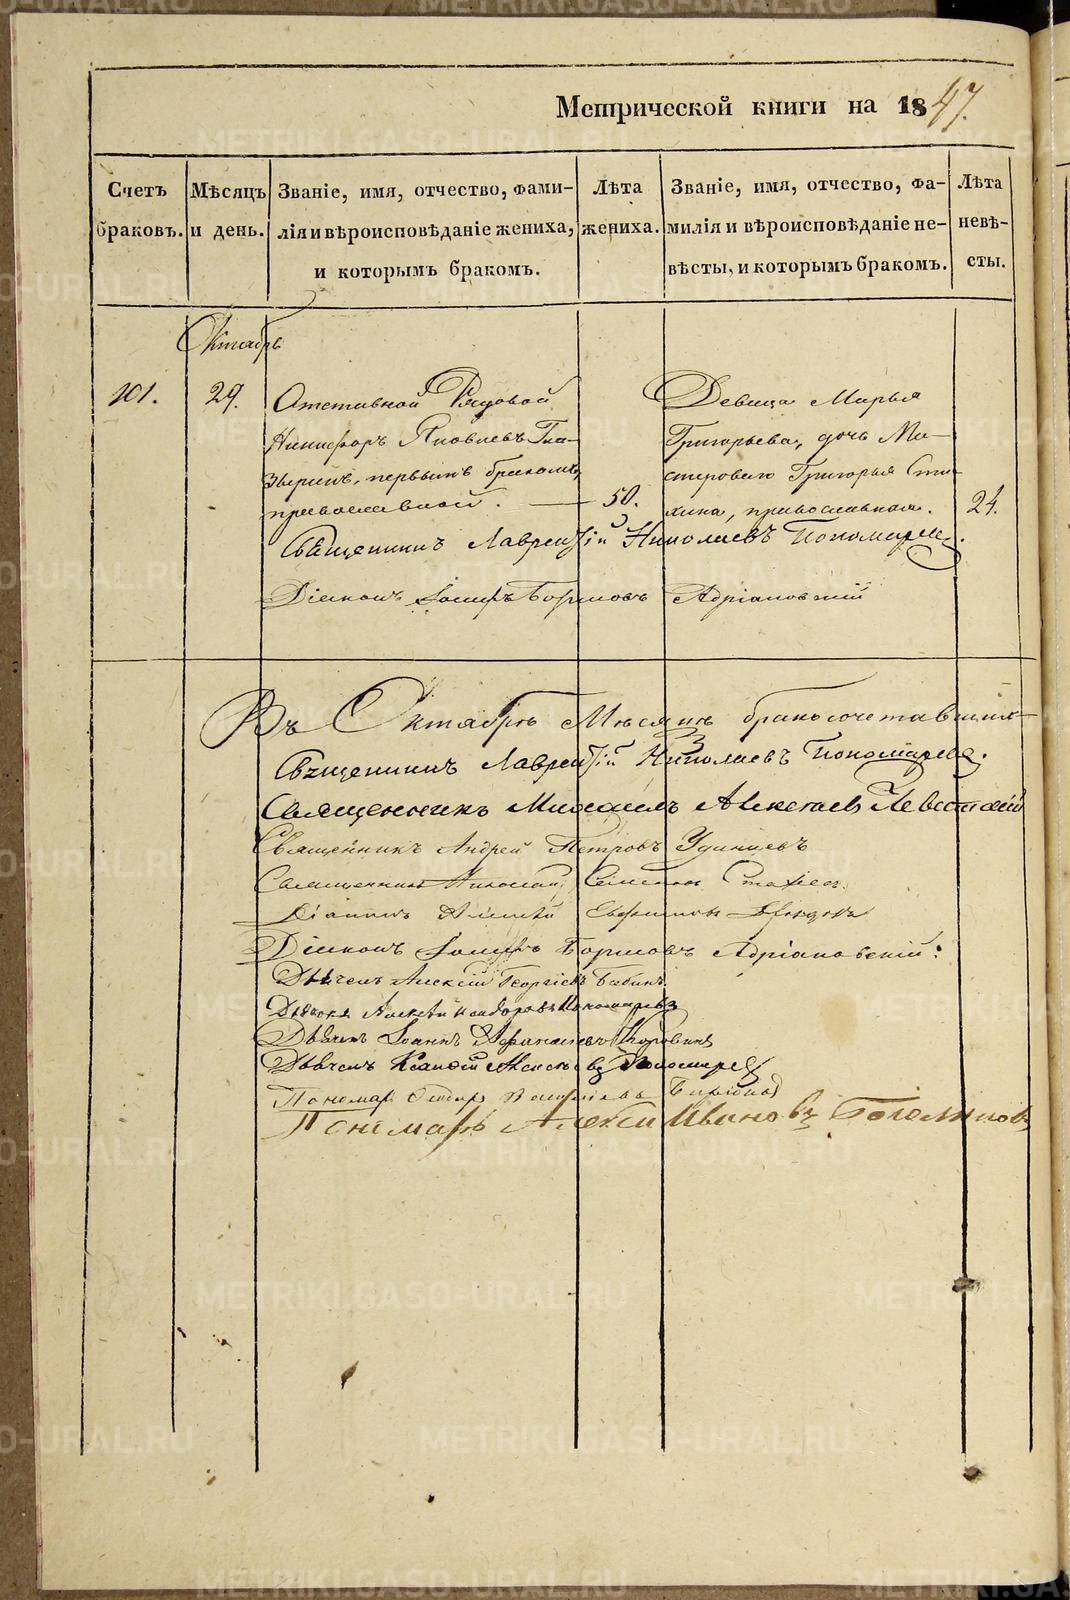 Метрической книги на 1847.
Счетъ браковъ.
Мѣсяцъ и день.
Званіе, имя, отчество, фами-
лія и вѣроисповѣданіе жениха,
и которымъ бракомъ.
Лѣта жениха.
Званіе, имя, отчество, фа-
милія и вѣроисповѣданіе не-
вѣсты, и которымъ бракомъ.
Лѣта невѣ-
сты.
Октябрь
101.
29.
Отставной Рядовой
Никифоръ Яковлевъ
первымъ бракомъ,
православной.
50.
Девица Марья
Григорьева, дочь Ма-
стероваго Григорья
православная.
24.
Священникъ Лаврентій Николаевъ Пономаревъ.
Діаконъ Іосифъ Адріановскій
Въ Октябрѣ Мѣсяцѣ бракосочетавшихъ
Священникъ Лаврентій Николаевъ Пономаревъ.
Священникъ Михаилъ Алексѣев
Священникъ Андрей Петровъ Удинцевъ
Священникъ Николай
Діаконъ Алексѣй Евфимовъ
Діаконъ Іосифъ Адріановскій:
Дьячекъ Алексій Георгіевъ Бабинъ
Дьячекъ Алексѣй Пономаревъ
Дьячекъ Іоаннъ Коровинъ
Дьячекъ Алексѣевъ Пономаревъ
Пономарь
Пономарь Алексѣй Ивановъ Боголѣповъ
METRIKI.GASO-URAL.RU